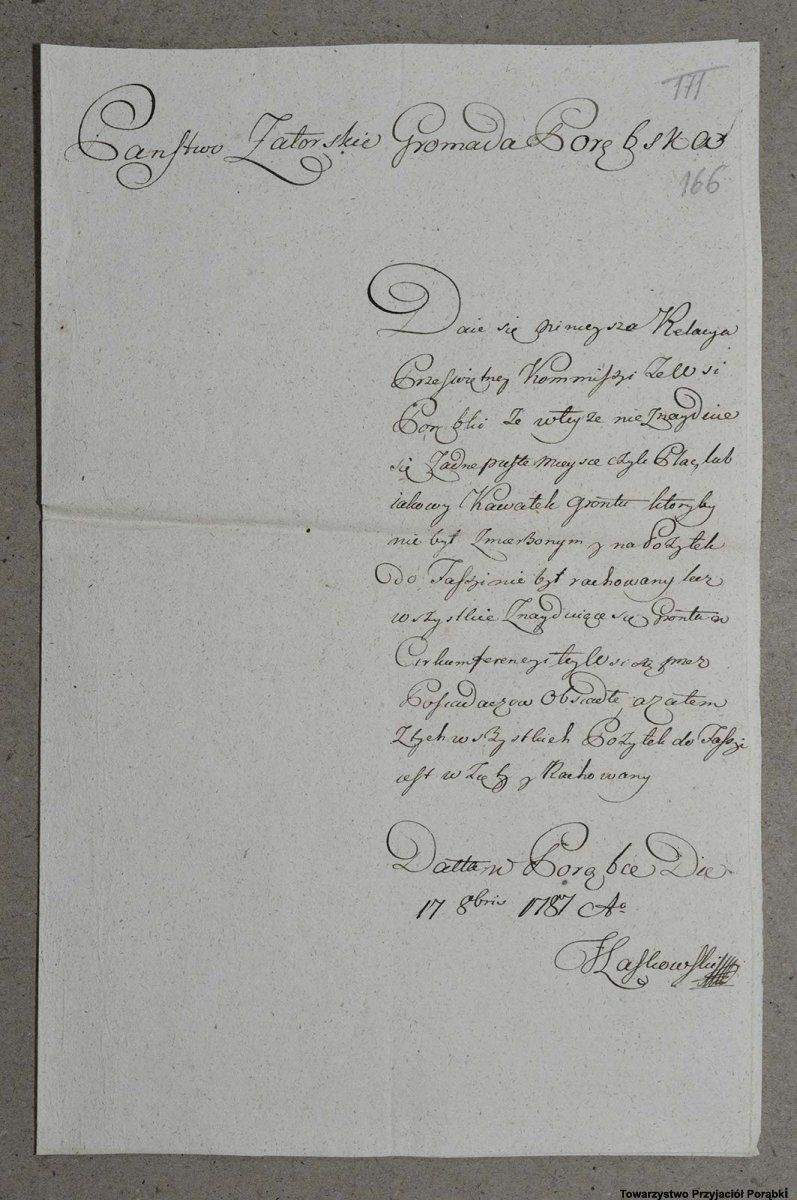 III
Państwo Zatorskie Gromada Porębska
166
Daie się ninieysza Relacya
Przeświętney Kommissyi Ze Wsi
Porębki że wteyże nie Znayduie
się Żadne puste mieysce czyli Plac, lub
iakowy Kawałek gróntu ktoryby
nie był Zmierżonym y na Pożytek
do Fassyi nie był rachowany lecz
wszystkie Znayduiące się Grónta w
Cirkumferencyi teyże wsi są przez
Posiadaczow Obsiadłe, a zatem
Ztych wszystkich Pożytek do Fassyi
iest wZięty y Rachowany
Datta w Porąbce Die
17 8bris 1787 Ao
Laskowski
Towarzystwo Przyjaciół Porąbki